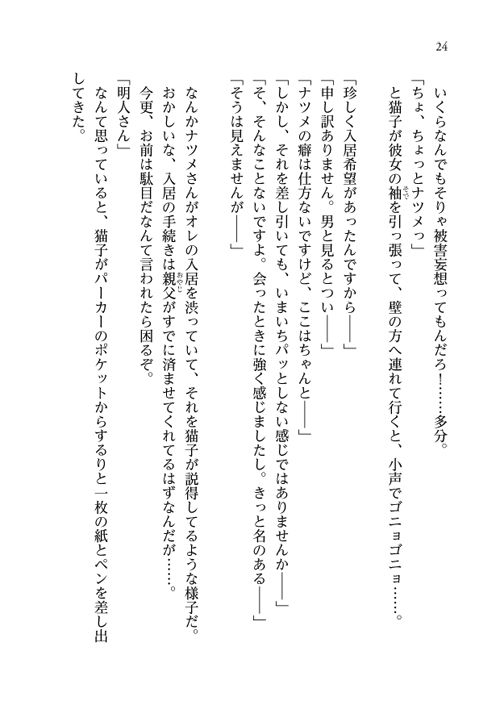 24
いくらなんでもそりゃ被害妄想ってもんだろ！……多分。
「ちょ、ちょっとナツメっ」
と猫子が彼女の袖を引っ張って、壁の方へ連れて行くと、小声でゴニョゴニョ……。
「珍しく入居希望があったんですから――」
「申し訳ありません。男と見るとつい――」
「ナツメの癖は仕方ないですけど、ここはちゃんと――」
「しかし、それを差し引いても、いまいちパッとしない感じではありませんか――」
「そ、そんなことないですよ。会ったときに強く感じましたし。きっと名のある――」
「そうは見えませんが――」
なんかナツメさんがオレの入居を渋っていて、それを猫子が説得してるような様子だ。
おかしいな、入居の手続きは親父がすでに済ませてくれてるはずなんだが……。
今更、お前は駄目だなんて言われたら困るぞ。
「明人さん」
なんて思っていると、猫子がパーカーのポケットからするりと一枚の紙とペンを差し出
してきた。